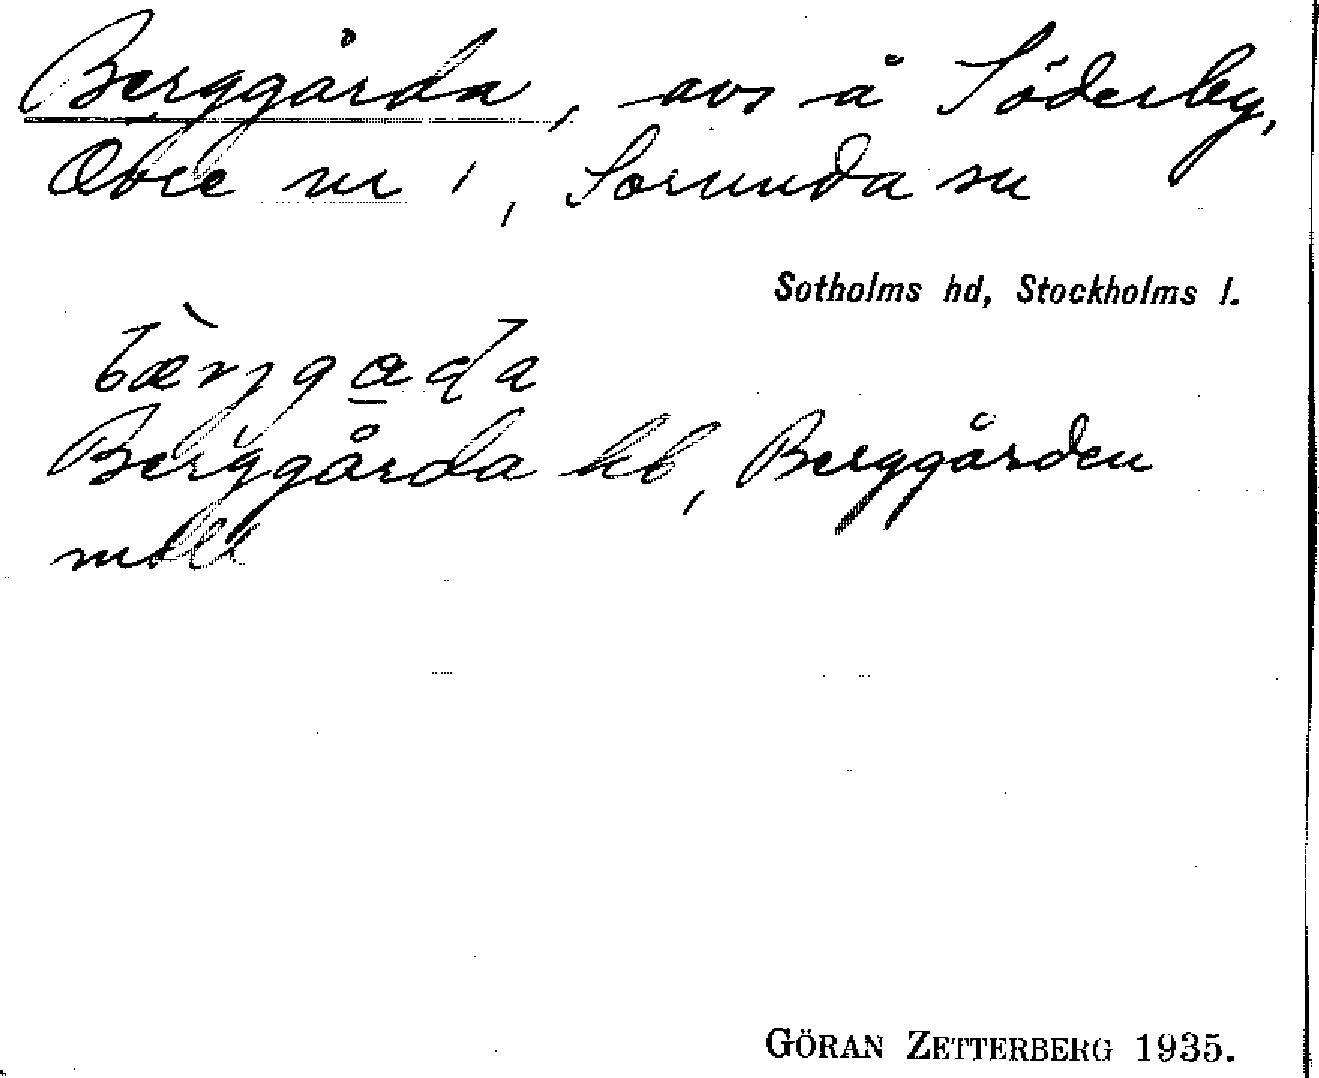 Berggårda, avs å Söderby,
nr 1, Sorunda sn
Sotholms hd, Stockholms l.
Berggårda hb, Berggården
GÖRAN ZETTERBERG 1935.